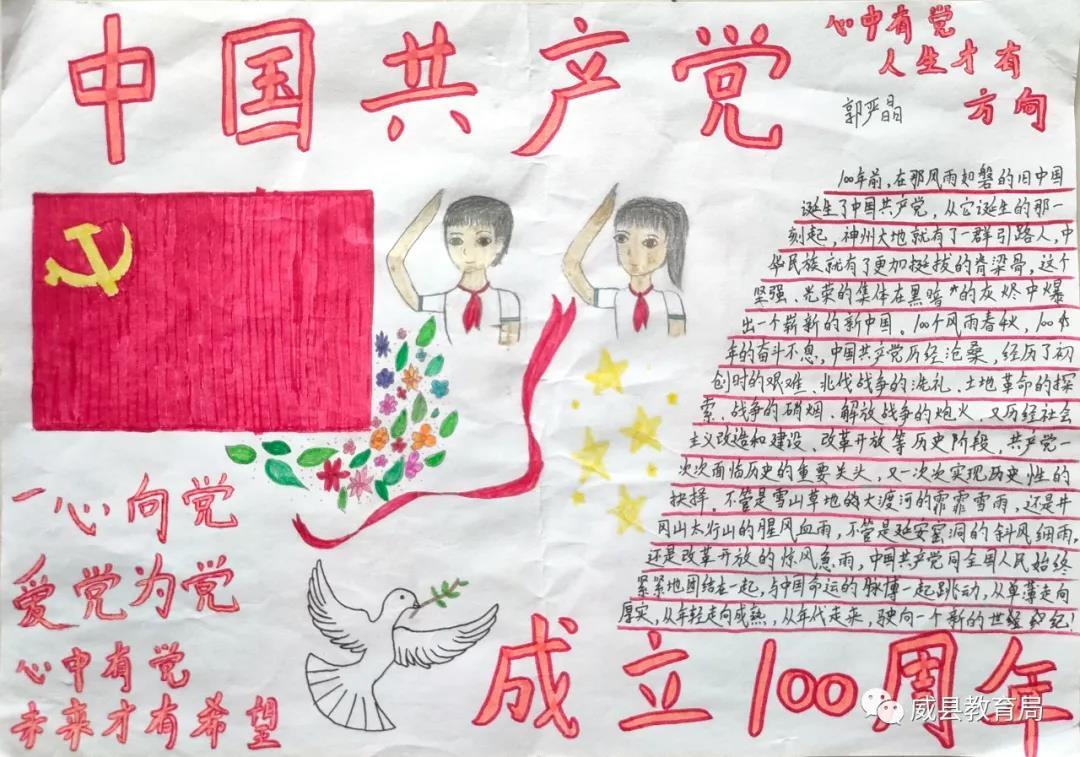 中国共产党
心中有党
人生才有
方向
郭严晶
100年前,在那风雨如磐的旧中国
诞生了中国共产党,从它诞生的那一
刻起,神州大地就有了一群引路人,中
华民族就有了更加挺拔的脊梁骨,这个
坚强、光荣的集体在黑暗的灰烬中爆
出一个崭新的新中国。100个风雨春秋,100多
年的奋斗不息,中国共产党历经沧桑,经历了初
创时的艰难、北伐战争的洗礼、土地革命的探
索、战争的硝烟、解放战争的炮火,又历经社会
主义改造和建设、改革开放等历史阶段,共产党一
次次面临历史的重要关头,又一次次实现历史性的
抉择。不管是雪山草地的大渡河的霏霏雪雨,还是井
冈山太行山的腥风血雨,不管是延安窑洞的斜风细雨,
还是改革开放的惊风急雨,中国共产党同全国人民始终
紧紧地团结在一起,与中国命运的脉搏一起跳动,从单薄走向
厚实,从年轻走向成熟,从年代走来,驶向一个新的世纪!
一心向党
爱党为党
心中有党
未来才有希望
成立100周年
威县教育局